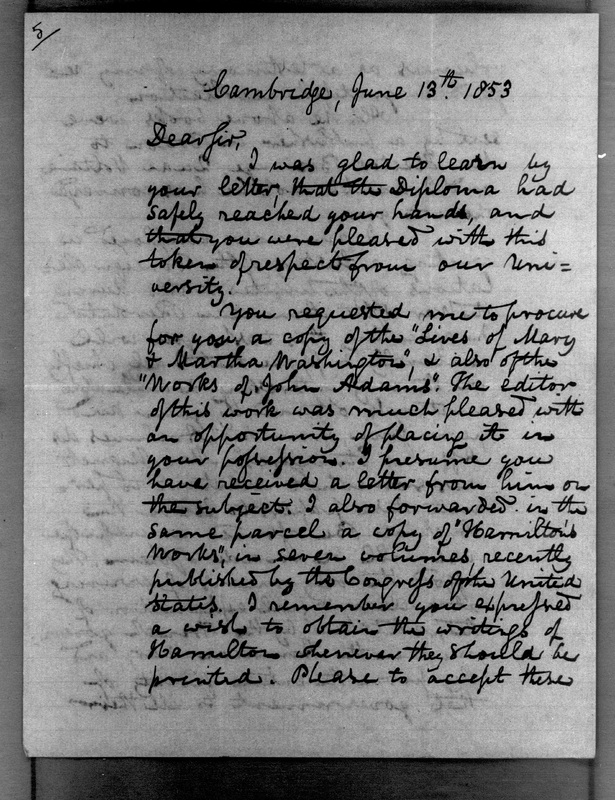 5/
Cambridge, June 13th. 1853
Dear Sir,
I was glad to learn by
your letter, that the Diploma had
safely reached your hands, and
that you were pleased with this
token of respect from our Uni=
versity.
You requested me to procure
for you, a copy of the "Lives of Mary
& Martha Washington", & also of the
"Works of John Adams". The editor
of this work was much pleased with
an opportunity of placing it in
your possession. I presume you
have received a letter from him on
the subject. I also forwarded in the
same parcel a copy of "Hamilton's
Works", in seven volumes, recently
published by the Congress of the United
States. I remember you expressed
a wish to obtain the writings of
Hamilton whenever they should be
printed. Please to accept these